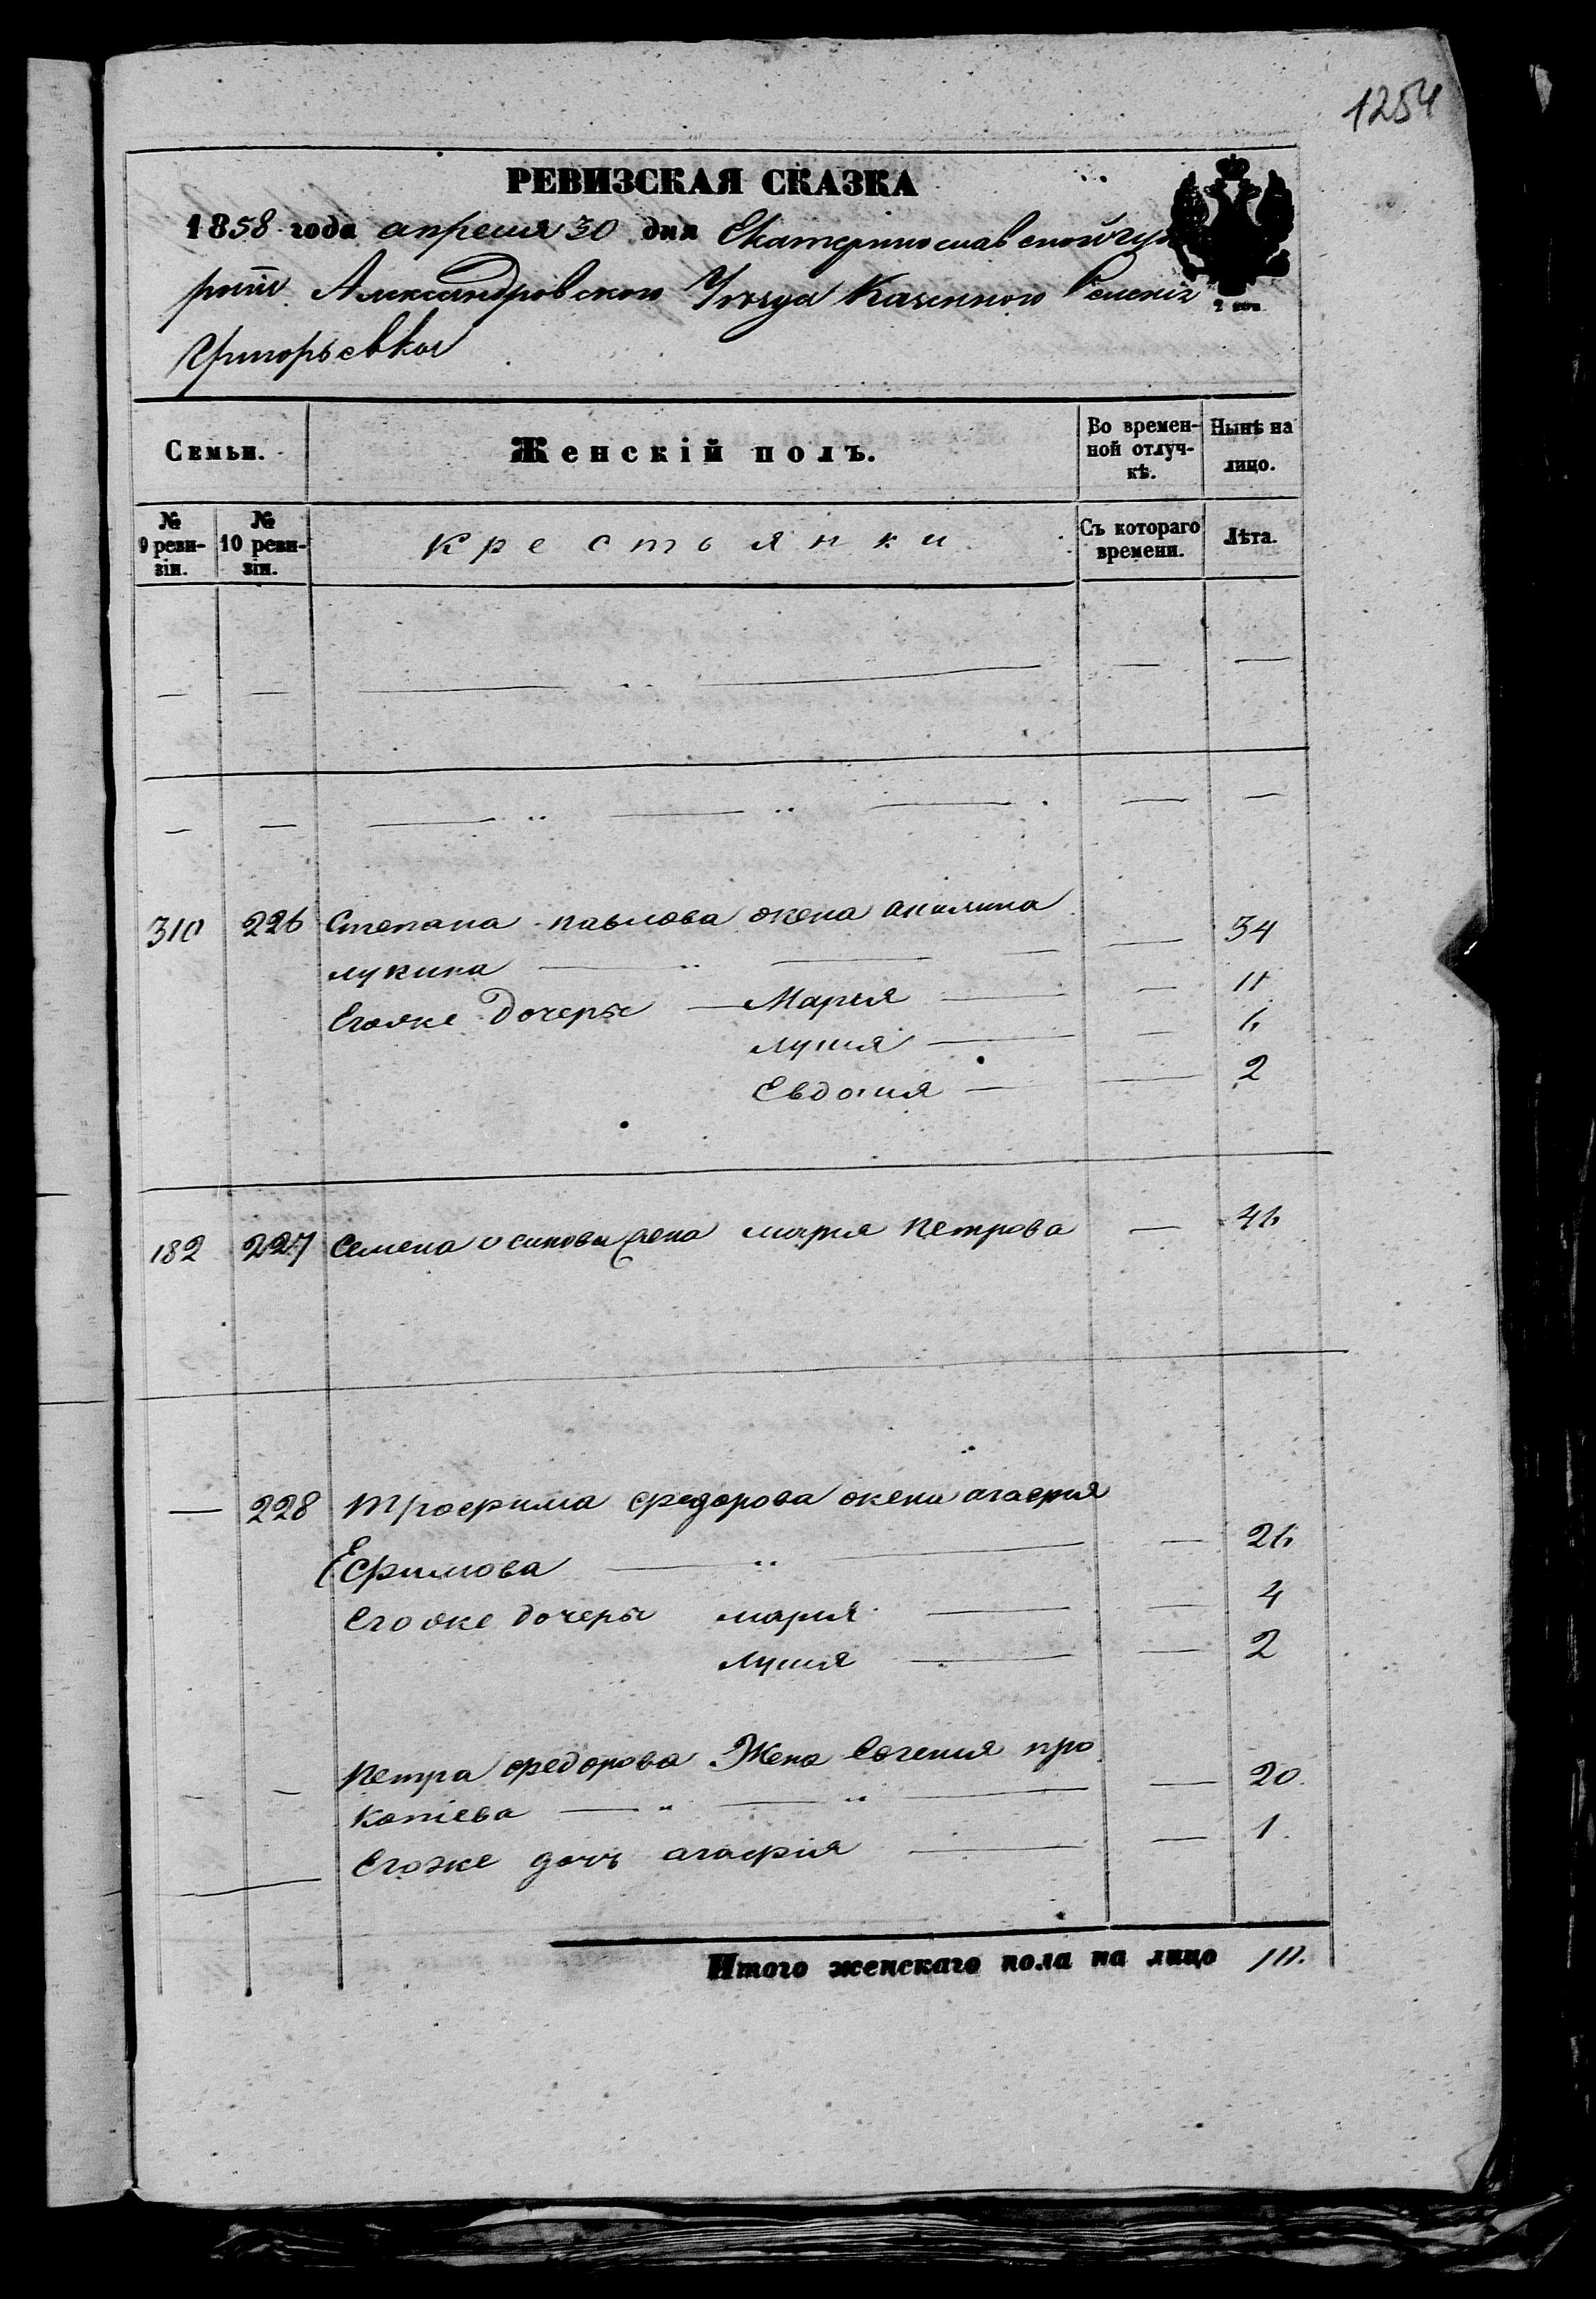 1254
РЕВИЗСКАЯ СКАЗКА
1858 года апреля 30 дня Екатеринославской гу
рніи Александровского Уѣзда Казенного Селенія
Григорьевки
Семьи. Женскій полъ. Во времен-ной отлуч-кѣ. Нынѣ на лицо.
№ 9 реви-зіи. № 10 реви-зіи. Крестьянки Съ котораго времени. Лѣта.
— — — — —
— — — — —
310 226 Степана павлова жена акилина
лукина — 34
Егоже дочеры — Марья — 11
лукия — 6
Евдокия — 2
182 227 Семена осипова жена мария петрова — 46
— 228 трофима федорова жена агафия
Ефимова — 26
Егоже дочеры мария — 4
лукия — 2
Петра федорова Жена Евгения про
копіева — 20
Егоже дочь агафия — 1.
Итого женскаго пола на лицо 10.
2 коп.